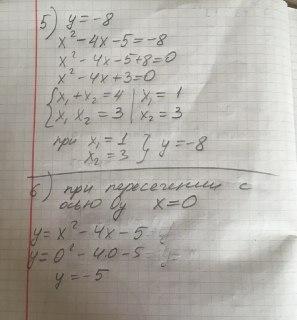 5) y = -8
x² - 4x - 5 = -8
x² - 4x - 5 + 8 = 0
x² - 4x + 3 = 0
{ x₁ + x₂ = 4 | x₁ = 1
{ x₁ x₂ = 3 | x₂ = 3
при x₁ = 1 } y = -8
x₂ = 3 }
6) при пересечении с
осью Oy x = 0
y = x² - 4x - 5
y = 0² - 4·0 - 5
y = -5